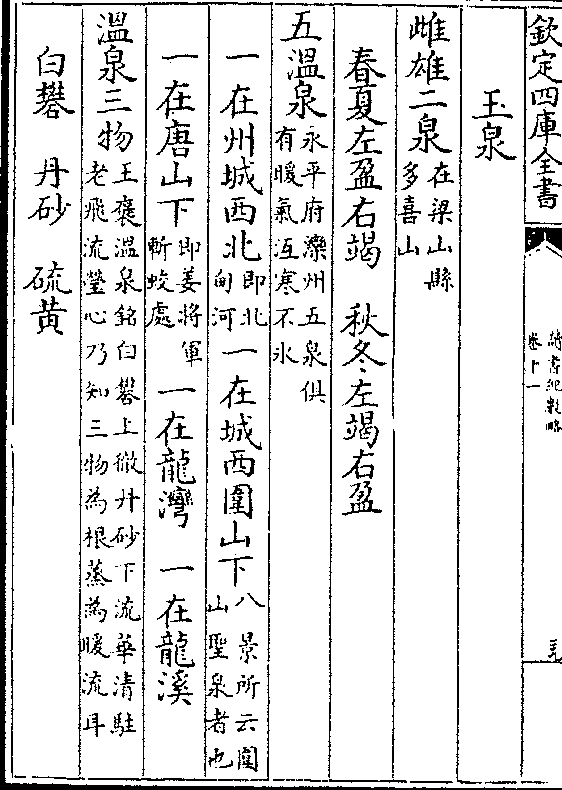 欽定四庫全書
讀書紀數略
卷十一
玉泉
雌雄二泉在梁山縣多喜山
春夏左盈右竭　秋冬左竭右盈
五溫泉永平府灤州五泉俱有暖氣沍寒不氷
一在州城西北即北甸河一在城西圍山下八景所云圍山聖泉者也
一在唐山下即姜將軍斬蛟處一在龍灣　一在龍溪
溫泉三物王襃溫泉銘白礬上徹丹砂下流華清駐老飛流瑩心乃知三物為根蒸為暖流耳
白礬　丹砂　硫黃